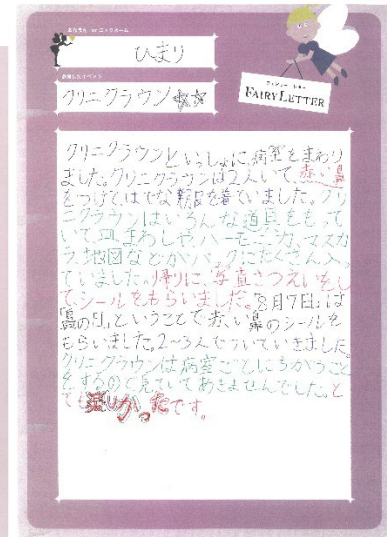 ひまり
クリニクラウン☆☆
FAIRY LETTER
クリニクラウンといっしょに病室をまわり
ました。クリニクラウンは2人いて赤い鼻
をつけて、はでな服を着ていました。クリ
ニクラウンはいろんな道具をもって
いて、皿まわしや、ハーモニカ、マスカ
ラ、地図などがバックにたくさん入っ
ていました。帰りに、写真さつえいをし
てシールをもらいました。「8月7日」は
「鼻の日」ということで赤い鼻のシールを
もらいました。2~3人でついていきました。
クリニクラウンは病室ごとにちがうこと
をするので見ていてあきませんでした。と
ても楽しかったです。